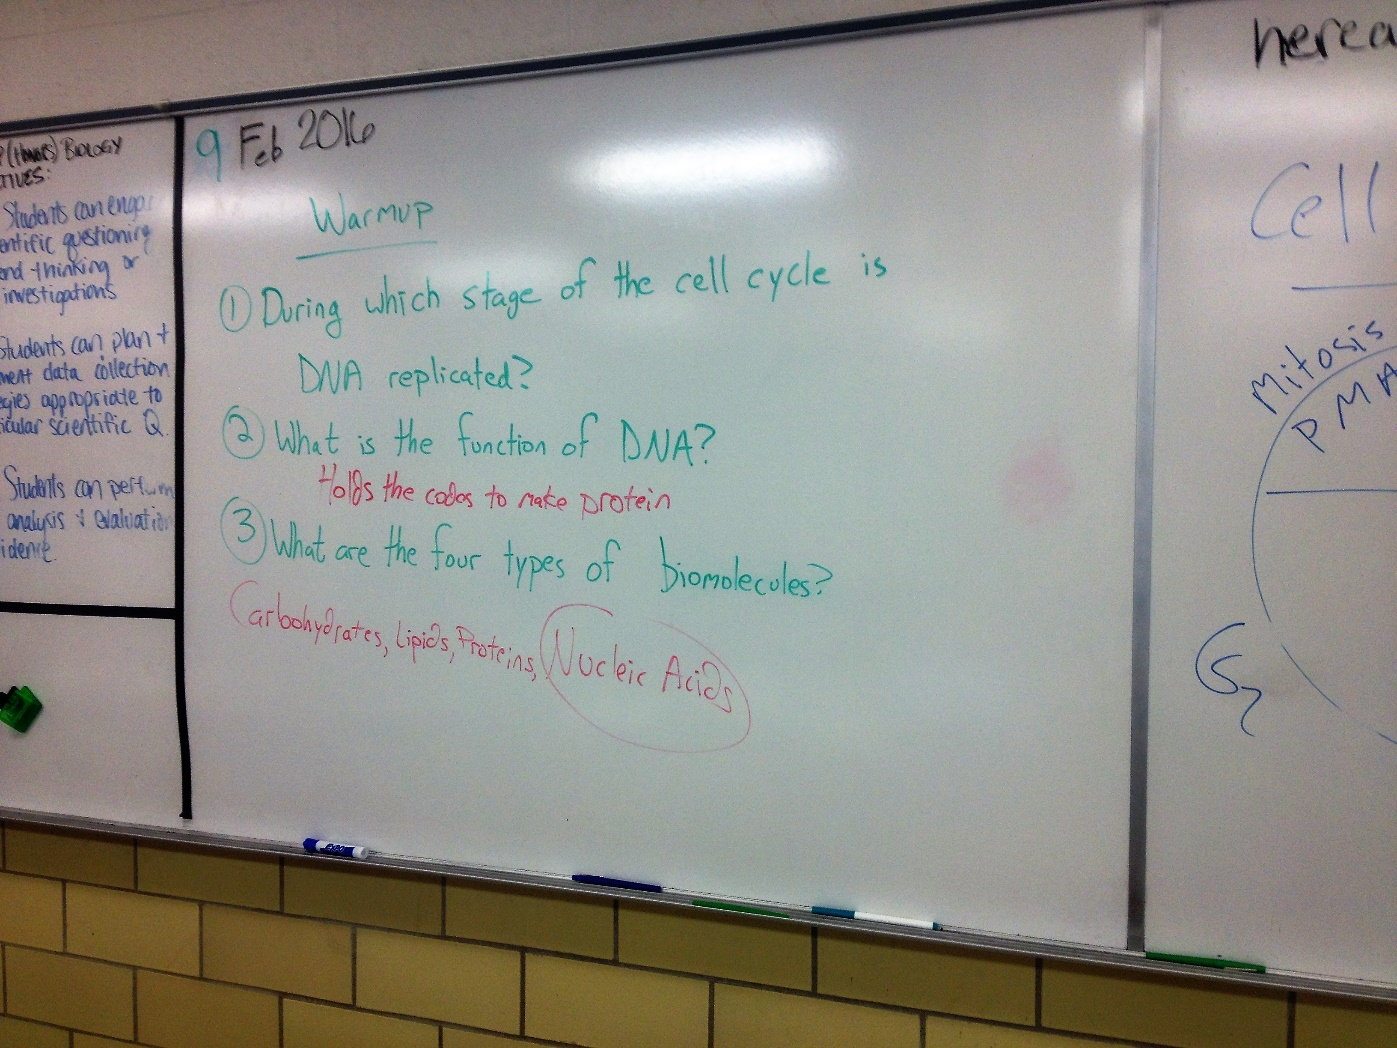 (Honors) BIOLOGY
TIVES:
Students can engag
entific questioning
and thinking or
investigations
Students can plan +
ment data collection
egies appropriate to
icular scientific Q.
Students can perform
analysis & evaluation
idence.
9 Feb 2016
Warmup
① During which stage of the cell cycle is
DNA replicated?
② What is the function of DNA?
Holds the codes to make protein
③ What are the four types of biomolecules?
Carbohydrates, Lipids, Proteins, Nucleic Acids
Cell
Mitosis
P M A
G2